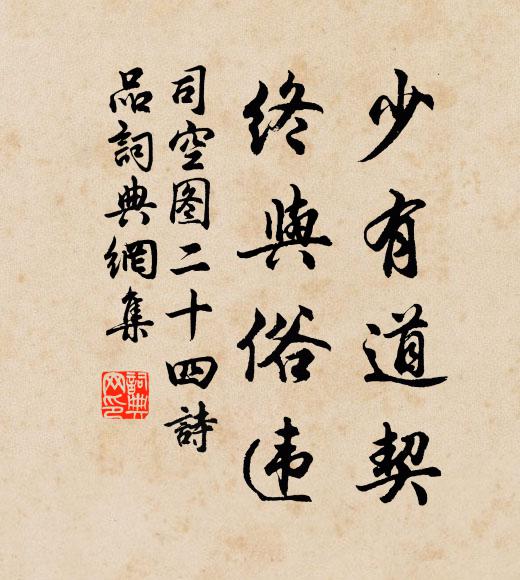 少有道契
終與俗违
司空图二十四詩
品詞典網集
詞典网印